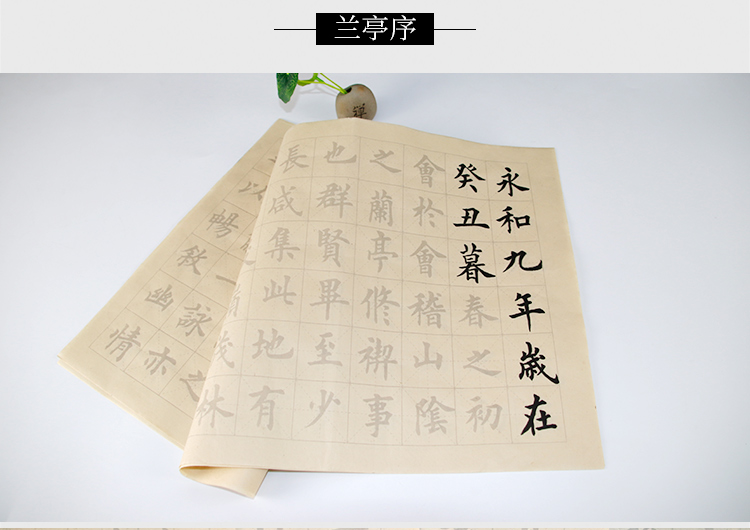 兰亭序
永和九年歲在
癸丑暮春之初
會於會稽山陰
之蘭亭脩禊事
也群賢畢至少
長咸集此地有
林
之
一詠亦
以暢敘幽情